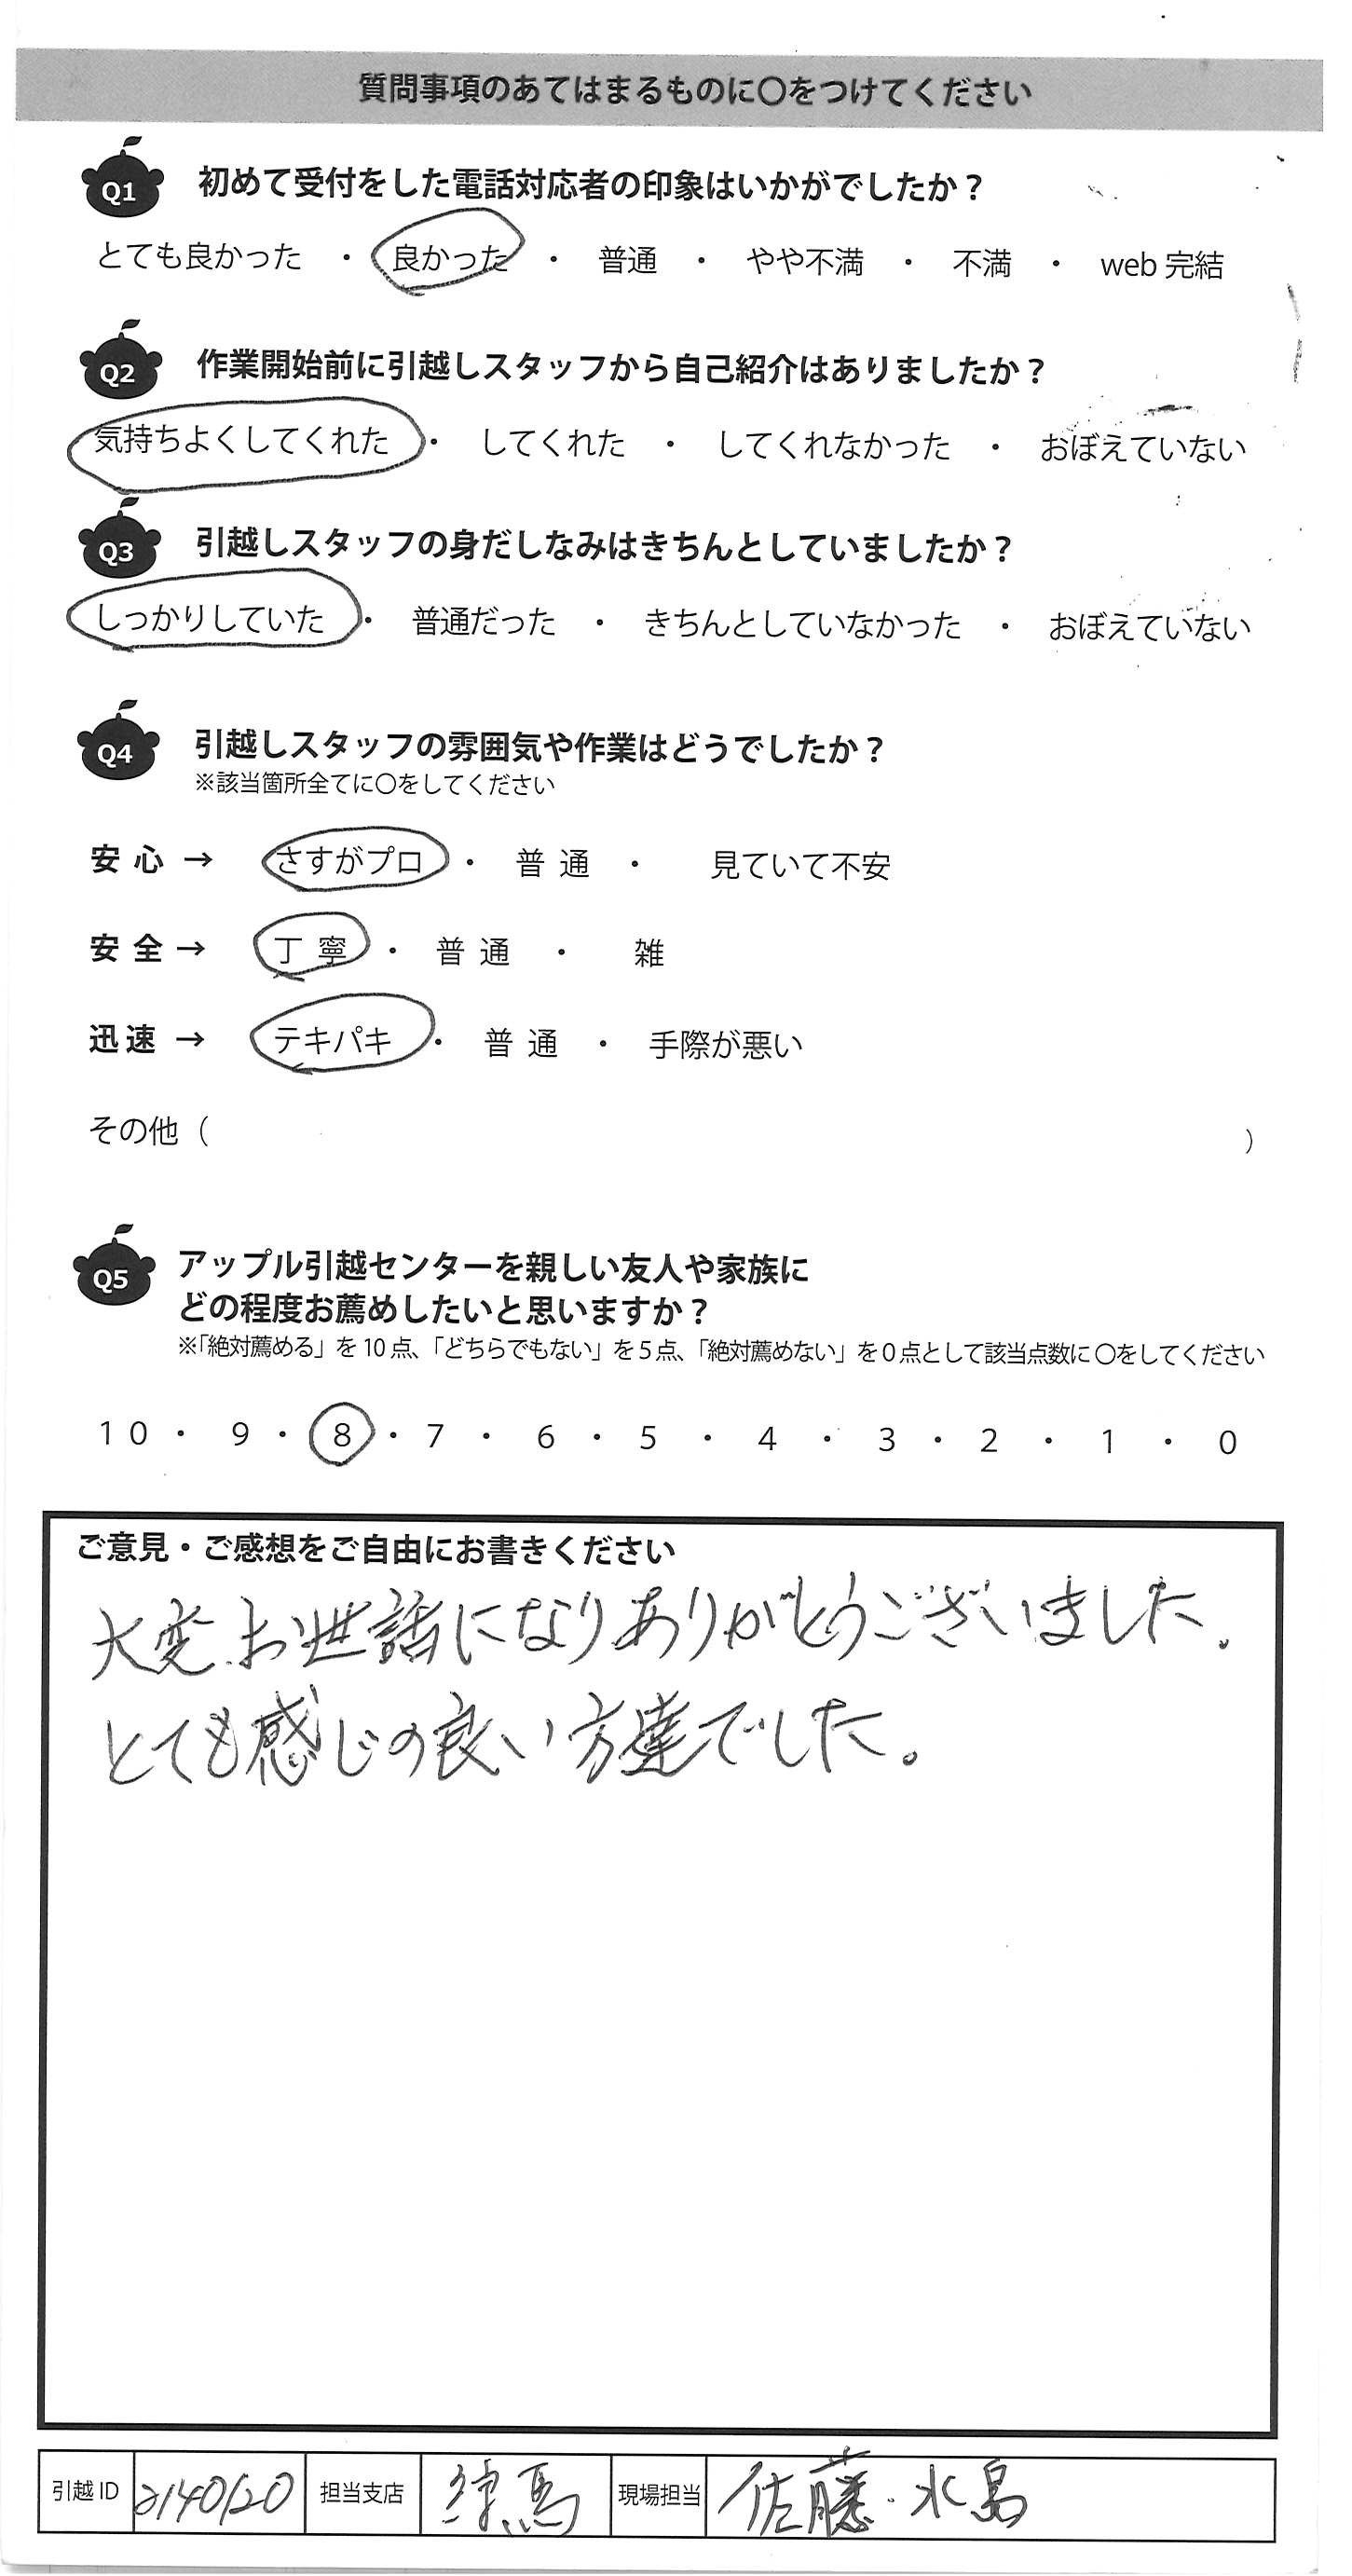 質問事項のあてはまるものに〇をつけてください
Q1 初めて受付をした電話対応者の印象はいかがでしたか？
とても良かった ・ 良かった ・ 普通 ・ やや不満 ・ 不満 ・ web 完結
Q2 作業開始前に引越しスタッフから自己紹介はありましたか？
気持ちよくしてくれた ・ してくれた ・ してくれなかった ・ おぼえていない
Q3 引越しスタッフの身だしなみはきちんとしていましたか？
しっかりしていた ・ 普通だった ・ きちんとしていなかった ・ おぼえていない
Q4 引越しスタッフの雰囲気や作業はどうでしたか？
※該当箇所全てに〇をしてください
安心 → さすがプロ ・ 普通 ・ 見ていて不安
安全 → 丁寧 ・ 普通 ・ 雑
迅速 → テキパキ ・ 普通 ・ 手際が悪い
その他（ ）
Q5 アップル引越センターを親しい友人や家族に
どの程度お薦めしたいと思いますか？
※「絶対薦める」を10点、「どちらでもない」を5点、「絶対薦めない」を0点として該当点数に〇をしてください
10 ・ 9 ・ 8 ・ 7 ・ 6 ・ 5 ・ 4 ・ 3 ・ 2 ・ 1 ・ 0
ご意見・ご感想をご自由にお書きください
大変お世話になりありがとうございました。
とても感じの良い方達でした。
引越ID 2140120 担当支店 練馬 現場担当 佐藤・水島